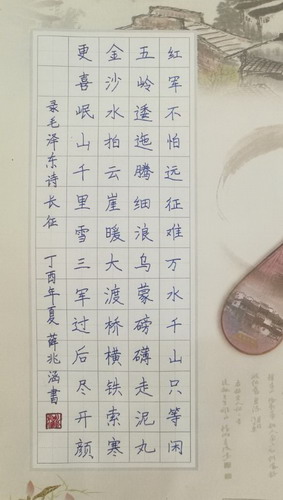 红军不怕远征难万水千山只等闲
五岭逶迤腾细浪乌蒙磅礴走泥丸
金沙水拍云崖暖大渡桥横铁索寒
更喜岷山千里雪三军过后尽开颜
录毛泽东诗长征 丁酉年夏薛兆涵書